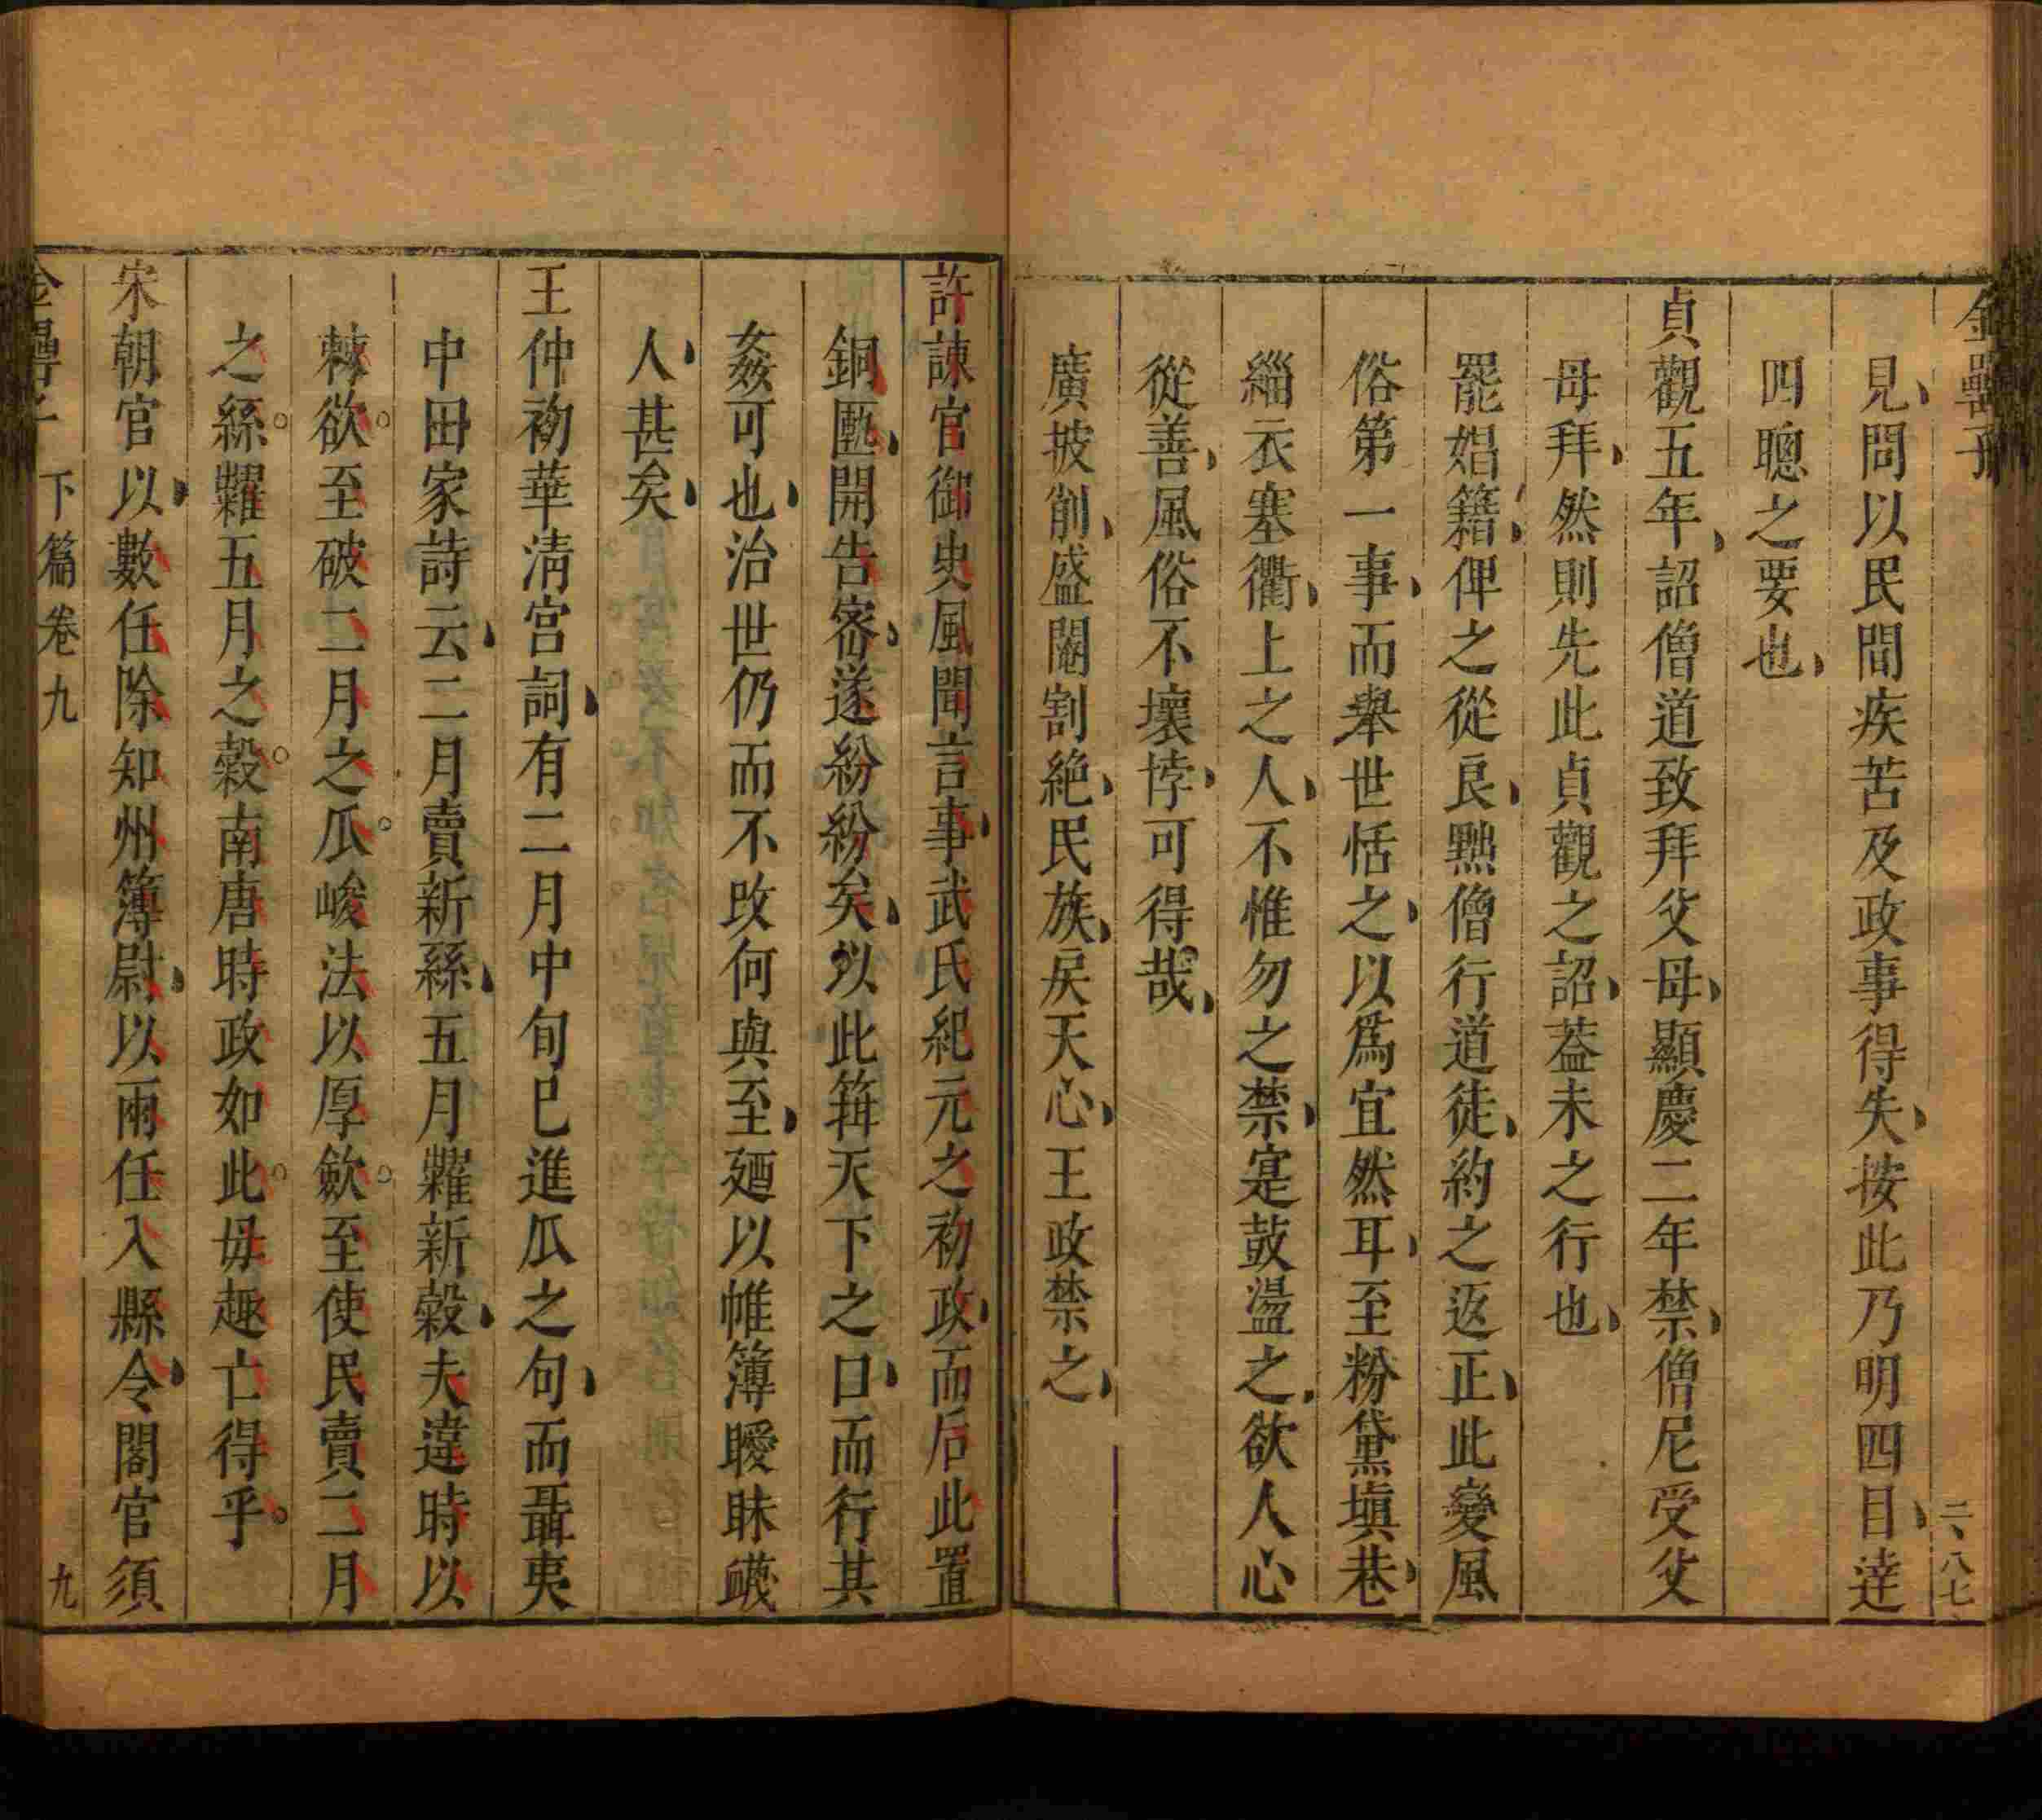 金罍子
二、八七
見問以民間疾苦及政事得失按此乃明四目達
四聰之要也
貞觀五年詔僧道致拜父母顯慶二年禁僧尼受父
母拜然則先此貞觀之詔葢未之行也
罷娼籍俾之從良黜僧行道徒約之返正此變風
俗第一事而舉世恬之以爲宜然耳至粉黛塡巷
緇衣塞衢上之人不惟勿之禁寔鼓盪之欲人心
從善風俗不壞悖可得哉
廣披削盛閹割絶民族戾天心王政禁之
許諫官御史風聞言事武氏紀元之初政而后此置
銅匭開告密遂紛紛矣以此箝天下之口而行其
姦可也治世仍而不攺何與至廼以帷簿曖昧衊
人甚矣
王仲初華淸宮詞有二月中旬巳進瓜之句而聶夷
中田家詩云二月賣新絲五月糶新榖夫違時以
棘欲至破二月之瓜峻法以厚歛至使民賣二月
之絲糶五月之榖南唐時政如此毋趣亡得乎
宋朝官以數任除知州簿尉以兩任入縣令閣官須
金罍子
下篇卷九
九